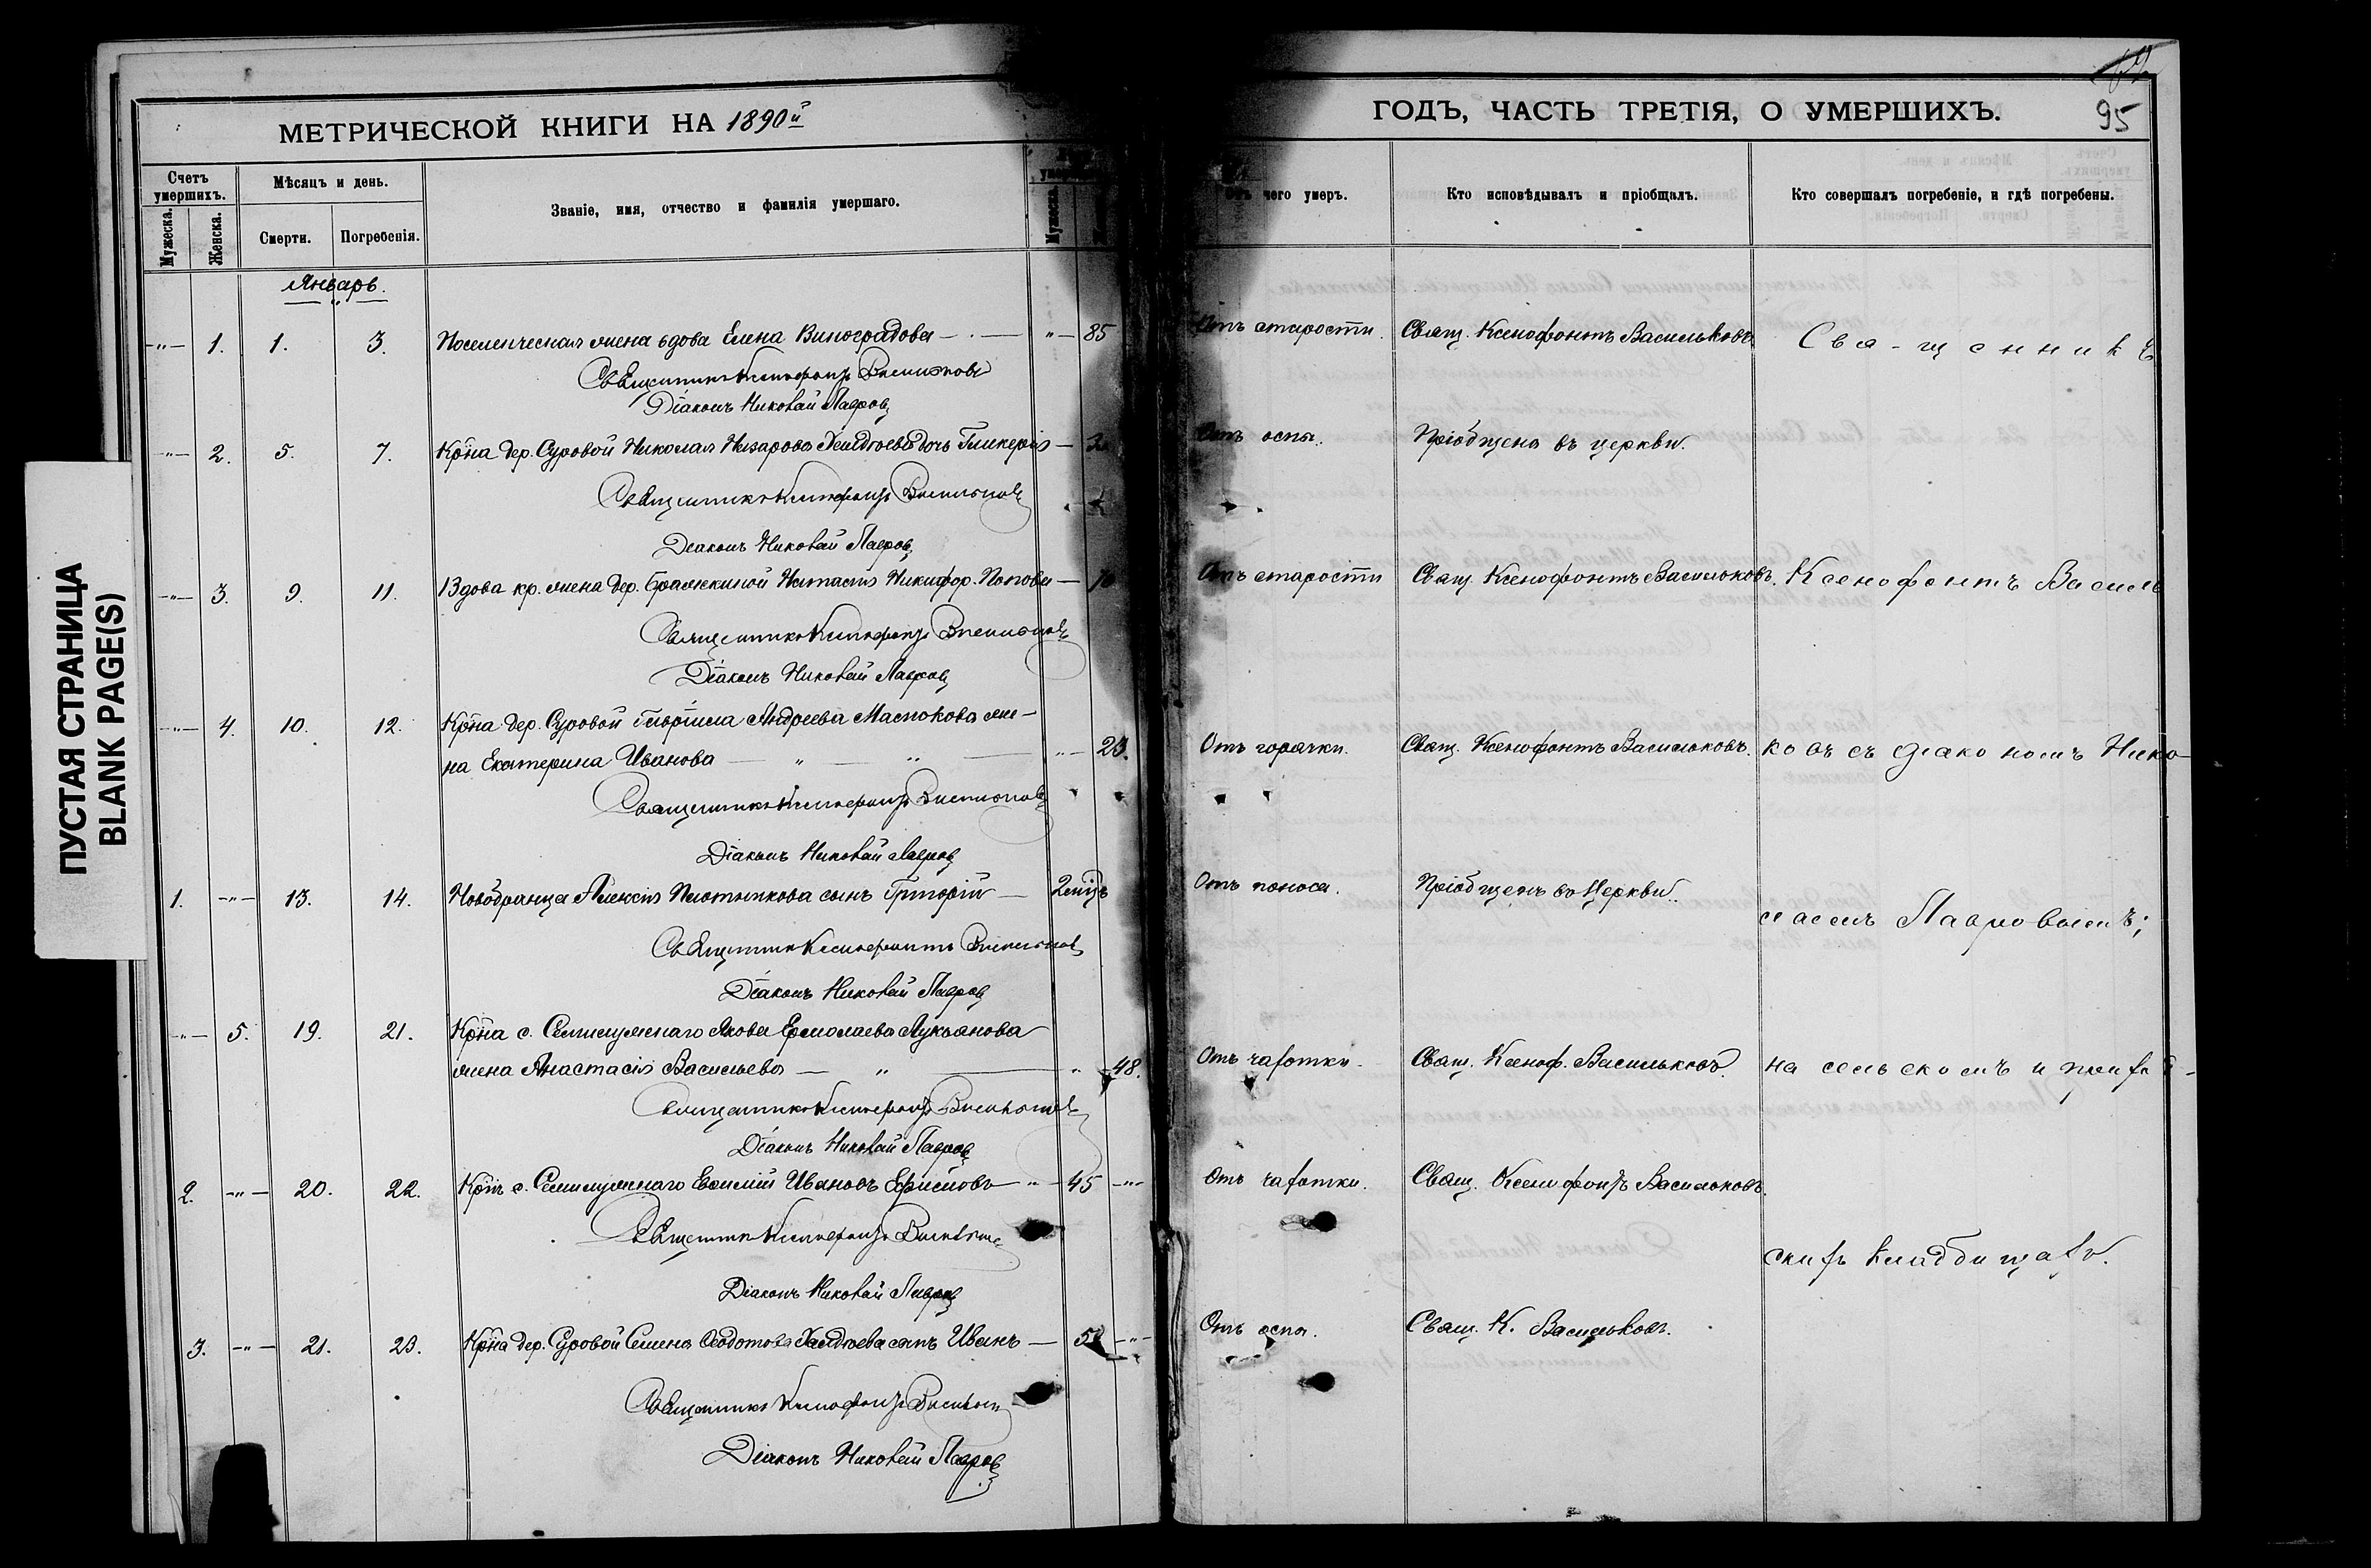 ПУСТАЯ СТРАНИЦА
BLANK PAGE(S)
МЕТРИЧЕСКОЙ КНИГИ НА 1890й
Счетъ умершихъ.
Мужеска.
Женска.
Мѣсяцъ и день.
Смерти.
Погребенія.
Званіе, имя, отчество и фамилія умершаго.
Мужеска.
Январь.
1. 1. 3. жена вдова Елена Виноградова 85
Священникъ Ксенофонтъ Васильковъ
Діаконъ Николай Лавровъ
2. 5. 7. Крна дер. Суровой Николая Назарова дочь Гликерія
Священникъ Ксенофонтъ Васильковъ
Діаконъ Николай Лавровъ
3. 9. 11. Вдова кр. жена дер. Никифор. Попова
Священникъ Ксенофонтъ Васильковъ
Діаконъ Николай Лавровъ
4. 10. 12. Крна дер. Суровой Гавріила Андреева Маслокова же-
на Екатерина Иванова 23.
Священникъ Ксенофонтъ Васильковъ
Діаконъ Николай Лавровъ
1. 13. 14. Новобранца Алексія Плотникова сынъ Григорій
Священникъ Ксенофонтъ Васильковъ
Діаконъ Николай Лавровъ
5. 19. 21. Крна с. Якова Ермолаева Лукьянова
жена Анастасія Васильева 48.
Священникъ Ксенофонтъ Васильковъ
Діаконъ Николай Лавровъ
2. 20. 22. Крнъ с. Ивановъ 45
Священникъ Ксенофонтъ Васильковъ
Діаконъ Николай Лавровъ
3. 21. 23. Крна дер. Суровой Семена Ѳеодотова сынъ Иванъ
Священникъ Ксенофонтъ Васильковъ
Діаконъ Николай Лавровъ
ГОДЪ, ЧАСТЬ ТРЕТІЯ, О УМЕРШИХЪ.
95
Отъ чего умеръ.
Кто исповѣдывалъ и пріобщалъ.
Кто совершалъ погребеніе, и гдѣ погребены.
Отъ старости. Свящ. Ксенофонтъ Васильковъ Свя-щенникъ
Отъ оспы. Пріобщена въ церкви.
Отъ старости Свящ. Ксенофонтъ Васильковъ. Ксенофонтъ Василь
Отъ горячки. Свящ. Ксенофонтъ Васильковъ. ковъ съ діакономъ Нико-
Отъ поноса. Пріобщенъ въ Церкви.
лаемъ Лавровымъ;
Отъ чахотки. Свящ. Ксеноф. Васильковъ. на сельскомъ и прихо
Отъ чахотки. Свящ. Ксенофонтъ Васильковъ.
скихъ кладбищахъ.
Отъ оспы. Свящ. К. Васильковъ.